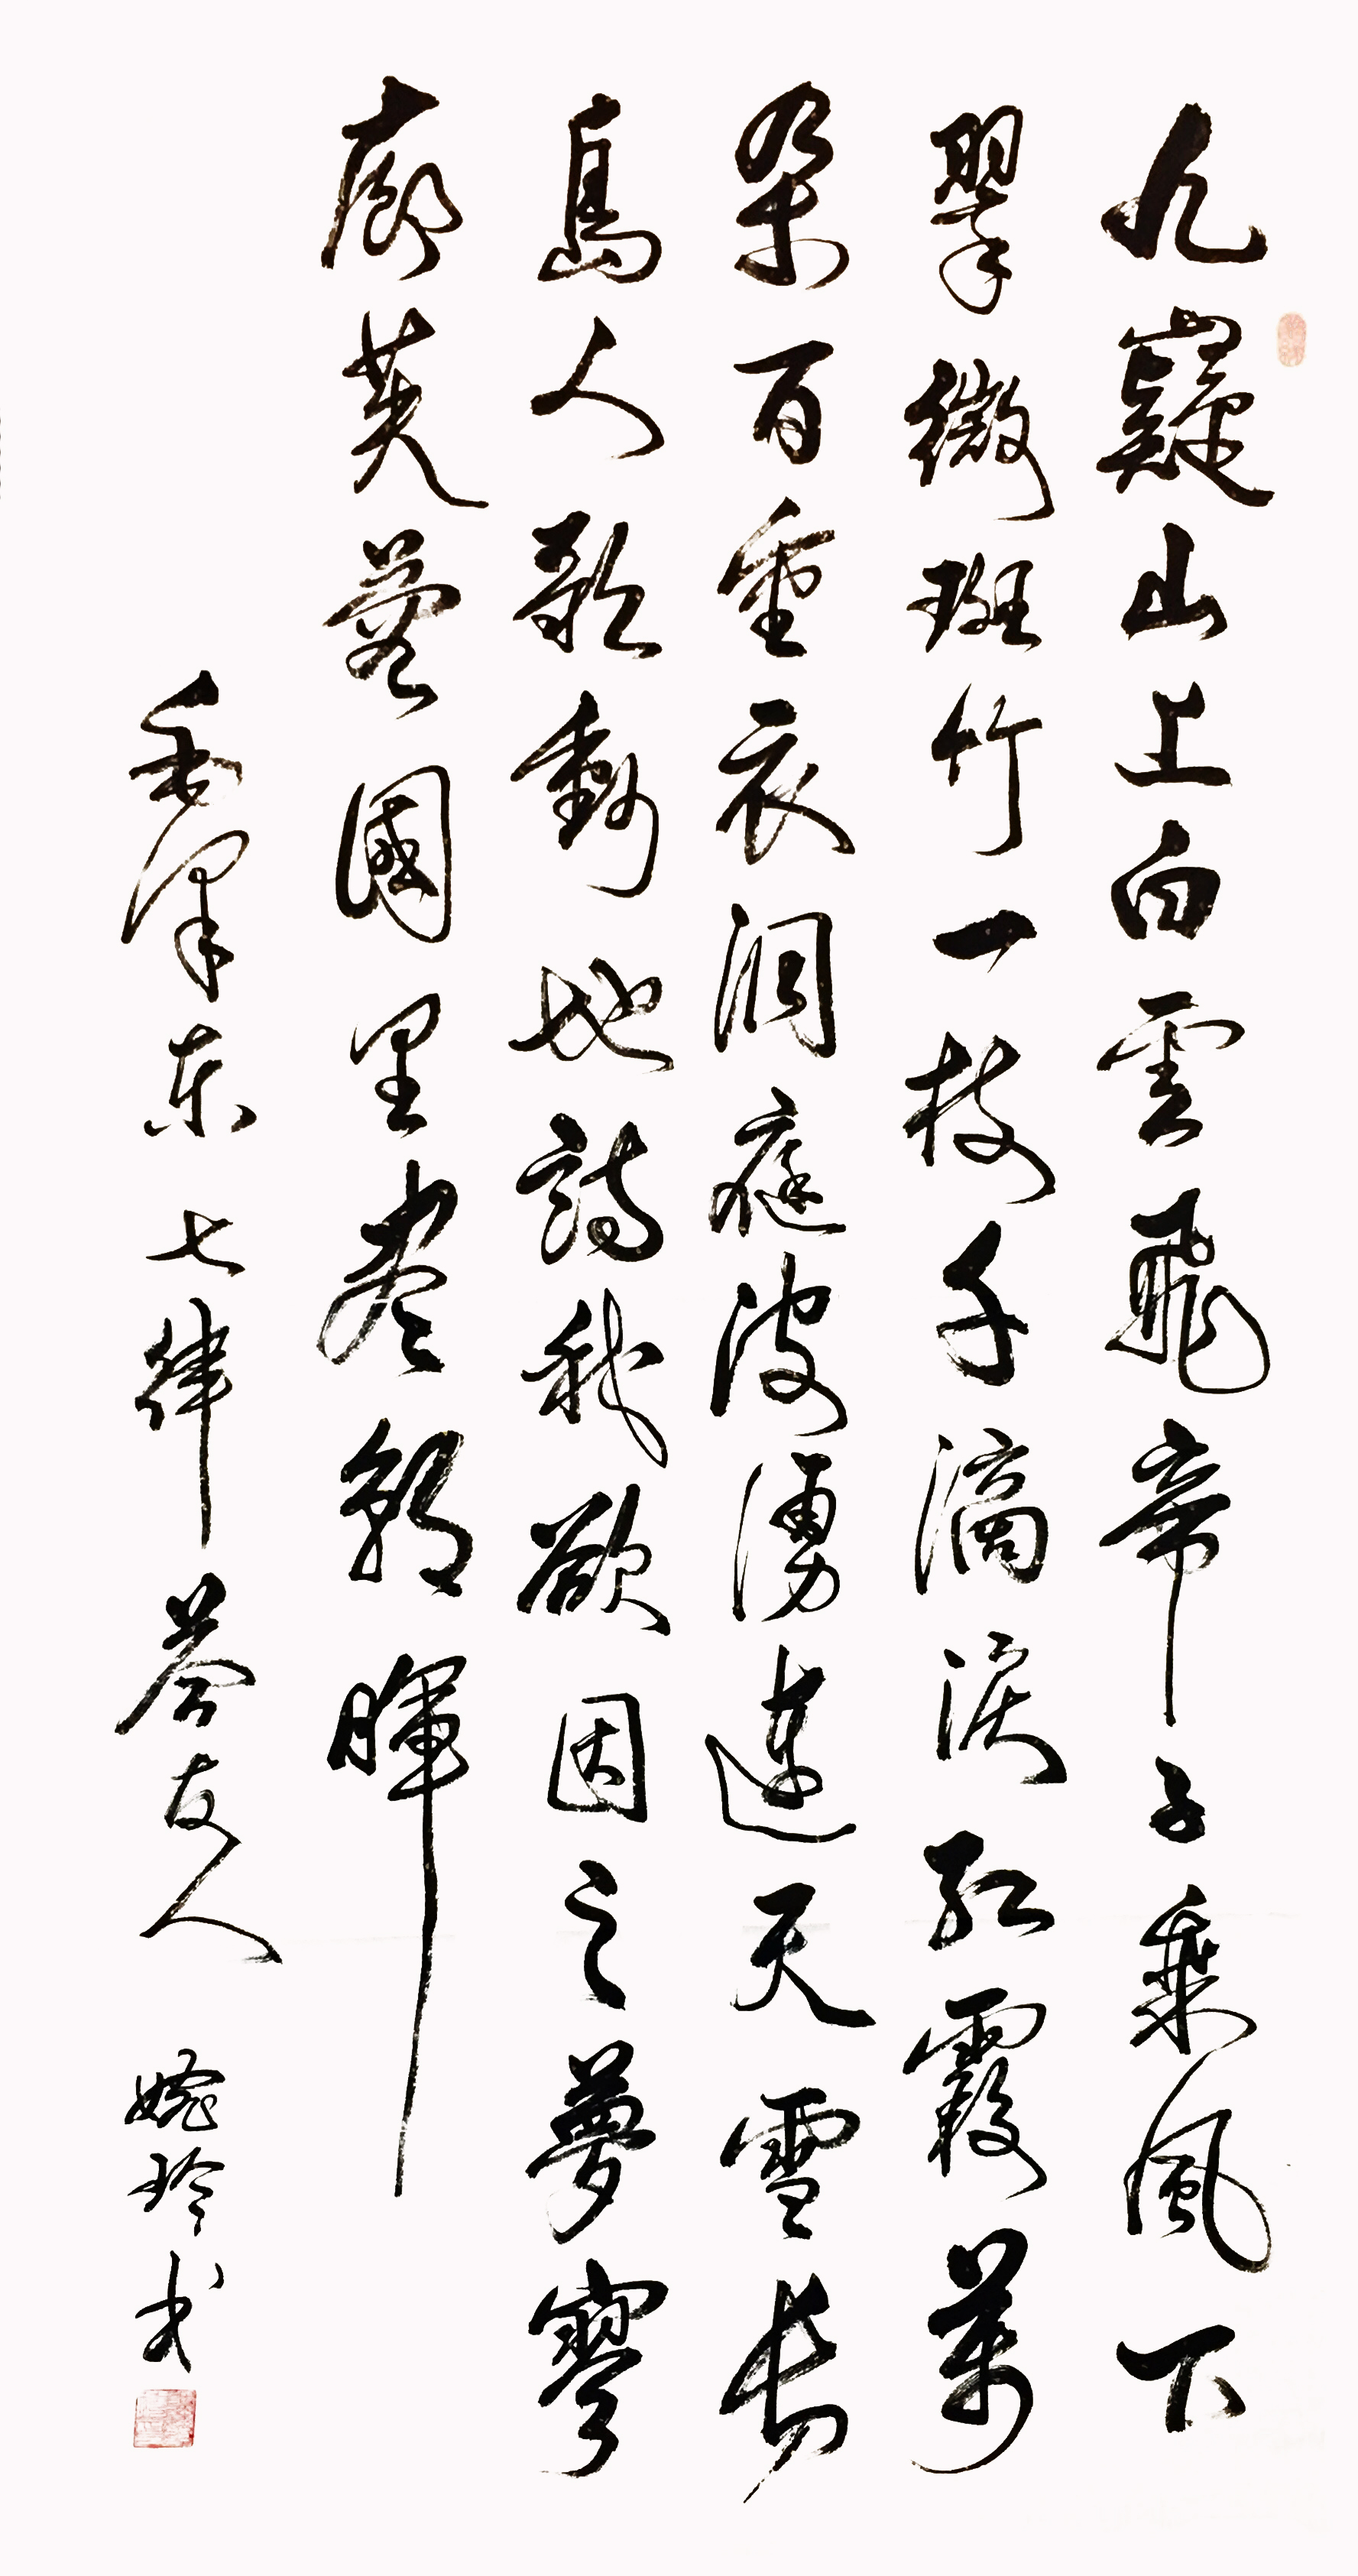 九嶷山上白雲飛帝子乘風下
翠微斑竹一枝千滴淚紅霞萬
朵百重衣洞庭波湧連天雪長
島人歌動地詩我欲因之夢寥
廓芙蓉國里盡朝暉
毛澤东 七律 答友人 玲书